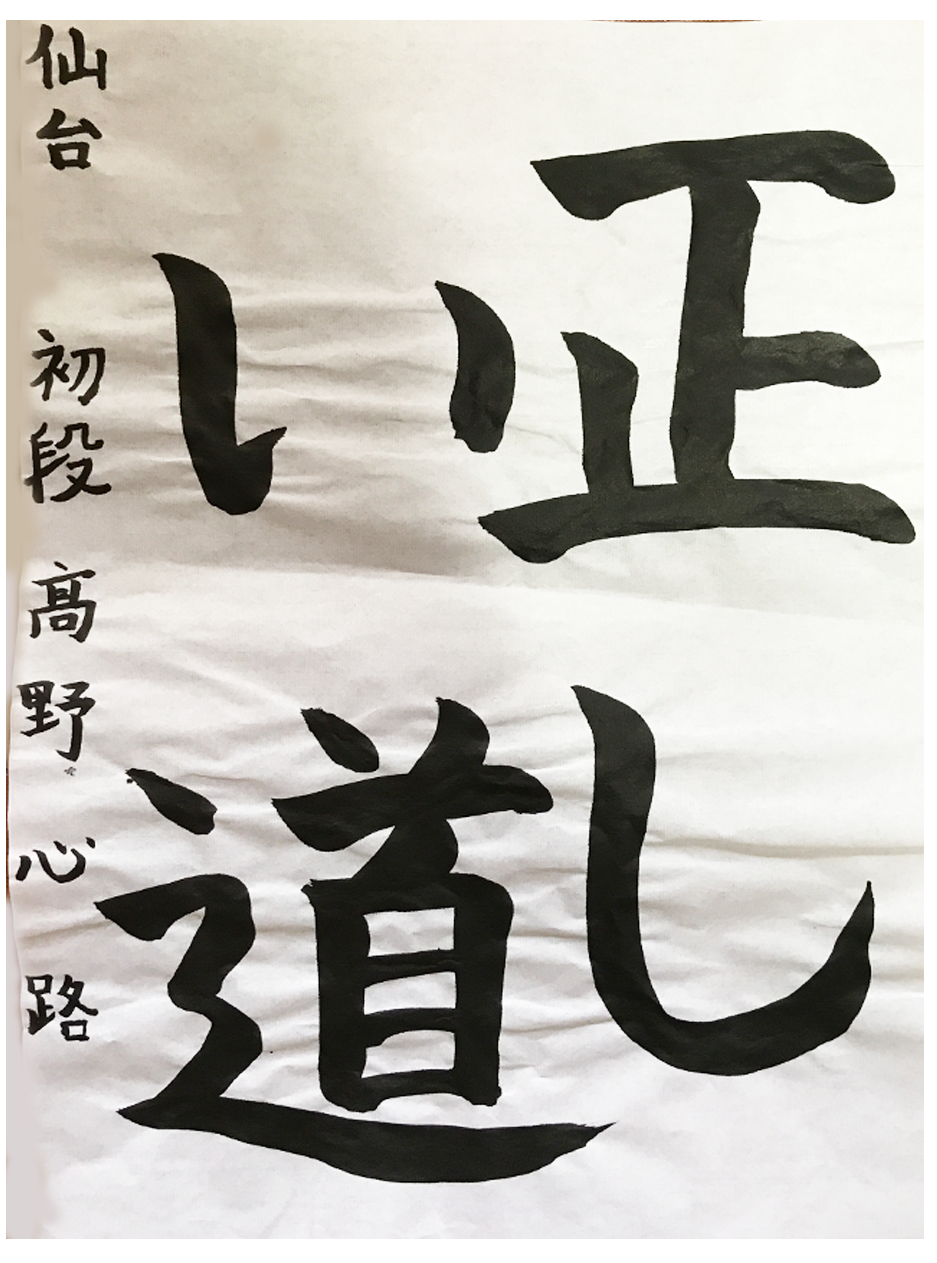 正し
い道
仙台 初段 髙野心路